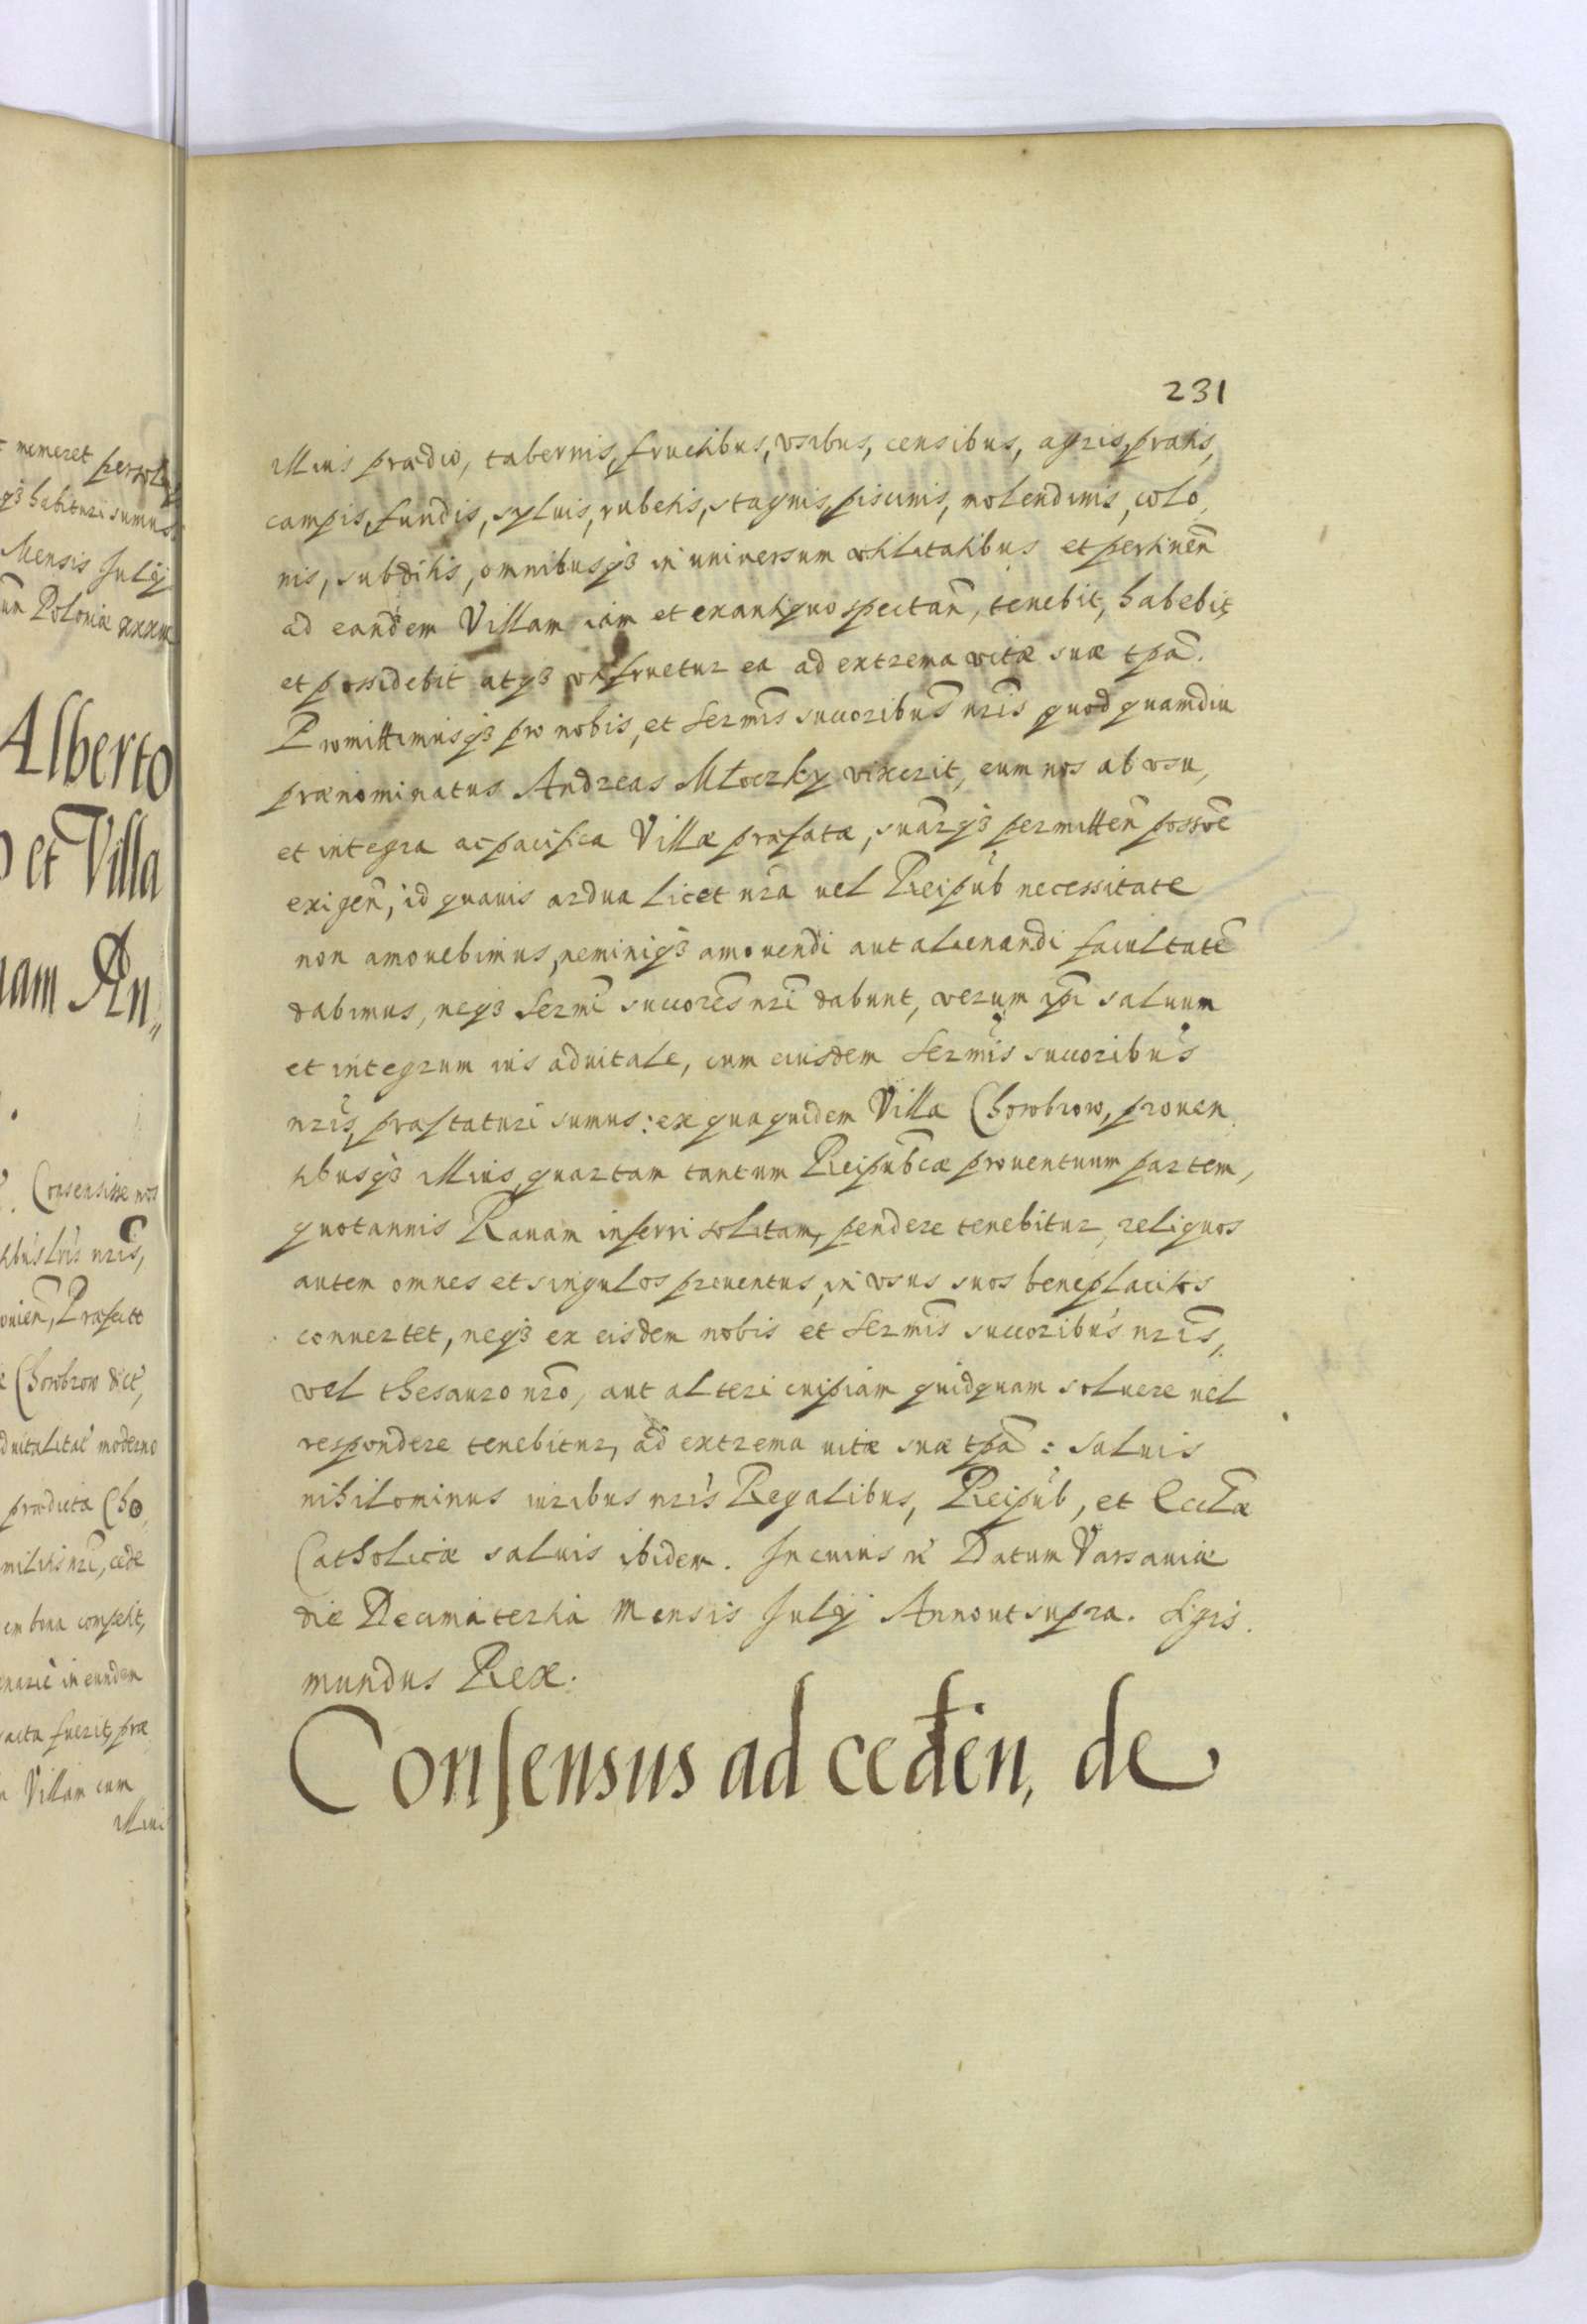 t memeret persol
qȝ habituri sumus
Mensis Julij
um Poloniæ xxxiii
Alberto
et Villa
uam An„
Consensisse nos
tibus lr̃is nr̃is,
onien̄, Præfecto
e Chorobrow dict,
duitalitat moderno
prædicta Cho,
militis nr̃i, cede
em bona competit,
enarie in eundem
acta fuerit, præ
Villam cum
illius
231
illius prædio, tabernis, fructibus, vsibus, censibus, agris, pratis,
campis, fundis, syluis, rubetis, stagnis, piscinis, molendinis, colo,
nis, subditis, omnibusqȝ in uniuersum vtilitatibus et pertinen̄
ad eandem Villam iam et ex antiquo spectan̄, tenebit, habebit,
et possidebit atqȝ vtifruetur ea ad extrema vitæ suæ tp̄a.
Promittimusqȝ pro nobis, et Serm̄is succoribus̄ nr̄is quod quamdiu
prænominatus Andreas Młoczky vixerit, eum nos ab vsu,
et integra ac pacifica Villæ præfatæ, suar̄qȝ permitten̄ possōe
exigen̄, id quauis ardua licet nr̄a uel Reipub̄ necessitate
non amouebimus, neminiqȝ amouendi aut alienandi facultatē
dabimus, neqȝ Serm̄i succores̄ nr̄i dabunt, verum ip̄i saluum
et integrum ius aduitale, cum eiusdem Serm̄is succoribus̄
nr̄is, præstaturi sumus: ex qua quidem Villa Chorobrow, prouen,
tibusqȝ illius, quartam tantum Reipub̄cæ prouentuum partem,
quotannis Rauam inferri solitam, pendere tenebitur, reliquos
autem omnes et singulos prouentus, in vsus suos beneplacitos
conuertet, neqȝ ex eisdem nobis et Serm̄is succoribus̄ nr̄is,
vel thesauro nr̄o, aut alteri cuipiam quidquam soluere uel
respondere tenebitur, ad extrema uitæ suæ tp̄a: Saluis
nihilominus iuribus nr̄is Regalibus, Reipub̄, et Eccl̄æ
Catholicæ saluis ibidem. In cuius rei Datum Varsauiæ
die Decima tertia Mensis Julij Anno ut supra. Sigis,
mundus Rex.
Consensus ad ceden̄, de